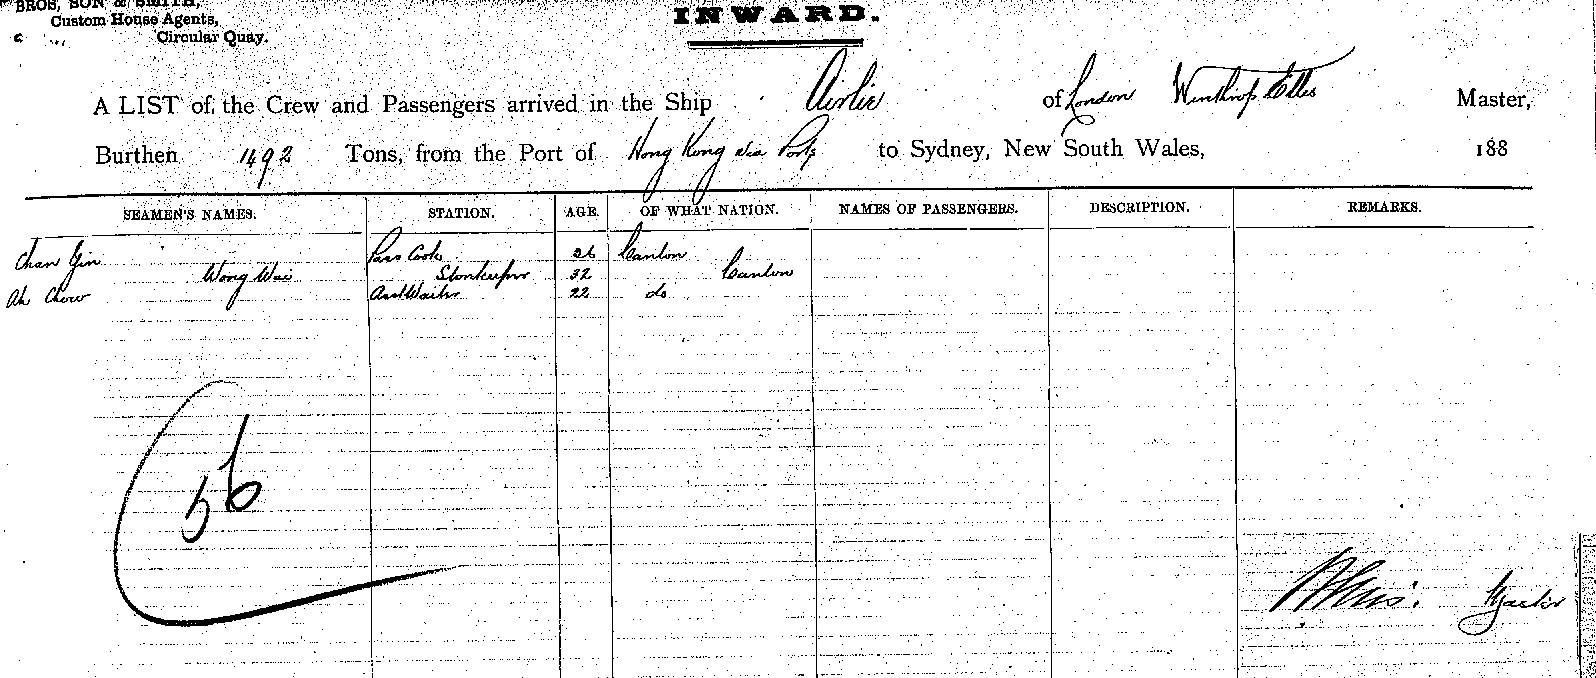 BROS, SON & SMITH,
Custom House Agents,
Circular Quay.
INWARD.
A LIST of the Crew and Passengers arrived in the Ship Airlie of London Winthrop Ellis Master,
Burthen 1492 Tons, from the Port of Hong Kong via Ports to Sydney, New South Wales, 188
SEAMEN'S NAMES. STATION. AGE. OF WHAT NATION. NAMES OF PASSENGERS. DESCRIPTION. REMARKS.
Chan Yin Pass Cook 26 Canton
Wong Wai Storekeeper 32 Canton
Ah Chow Asst Waiter 22 do
56
Ellis. Master